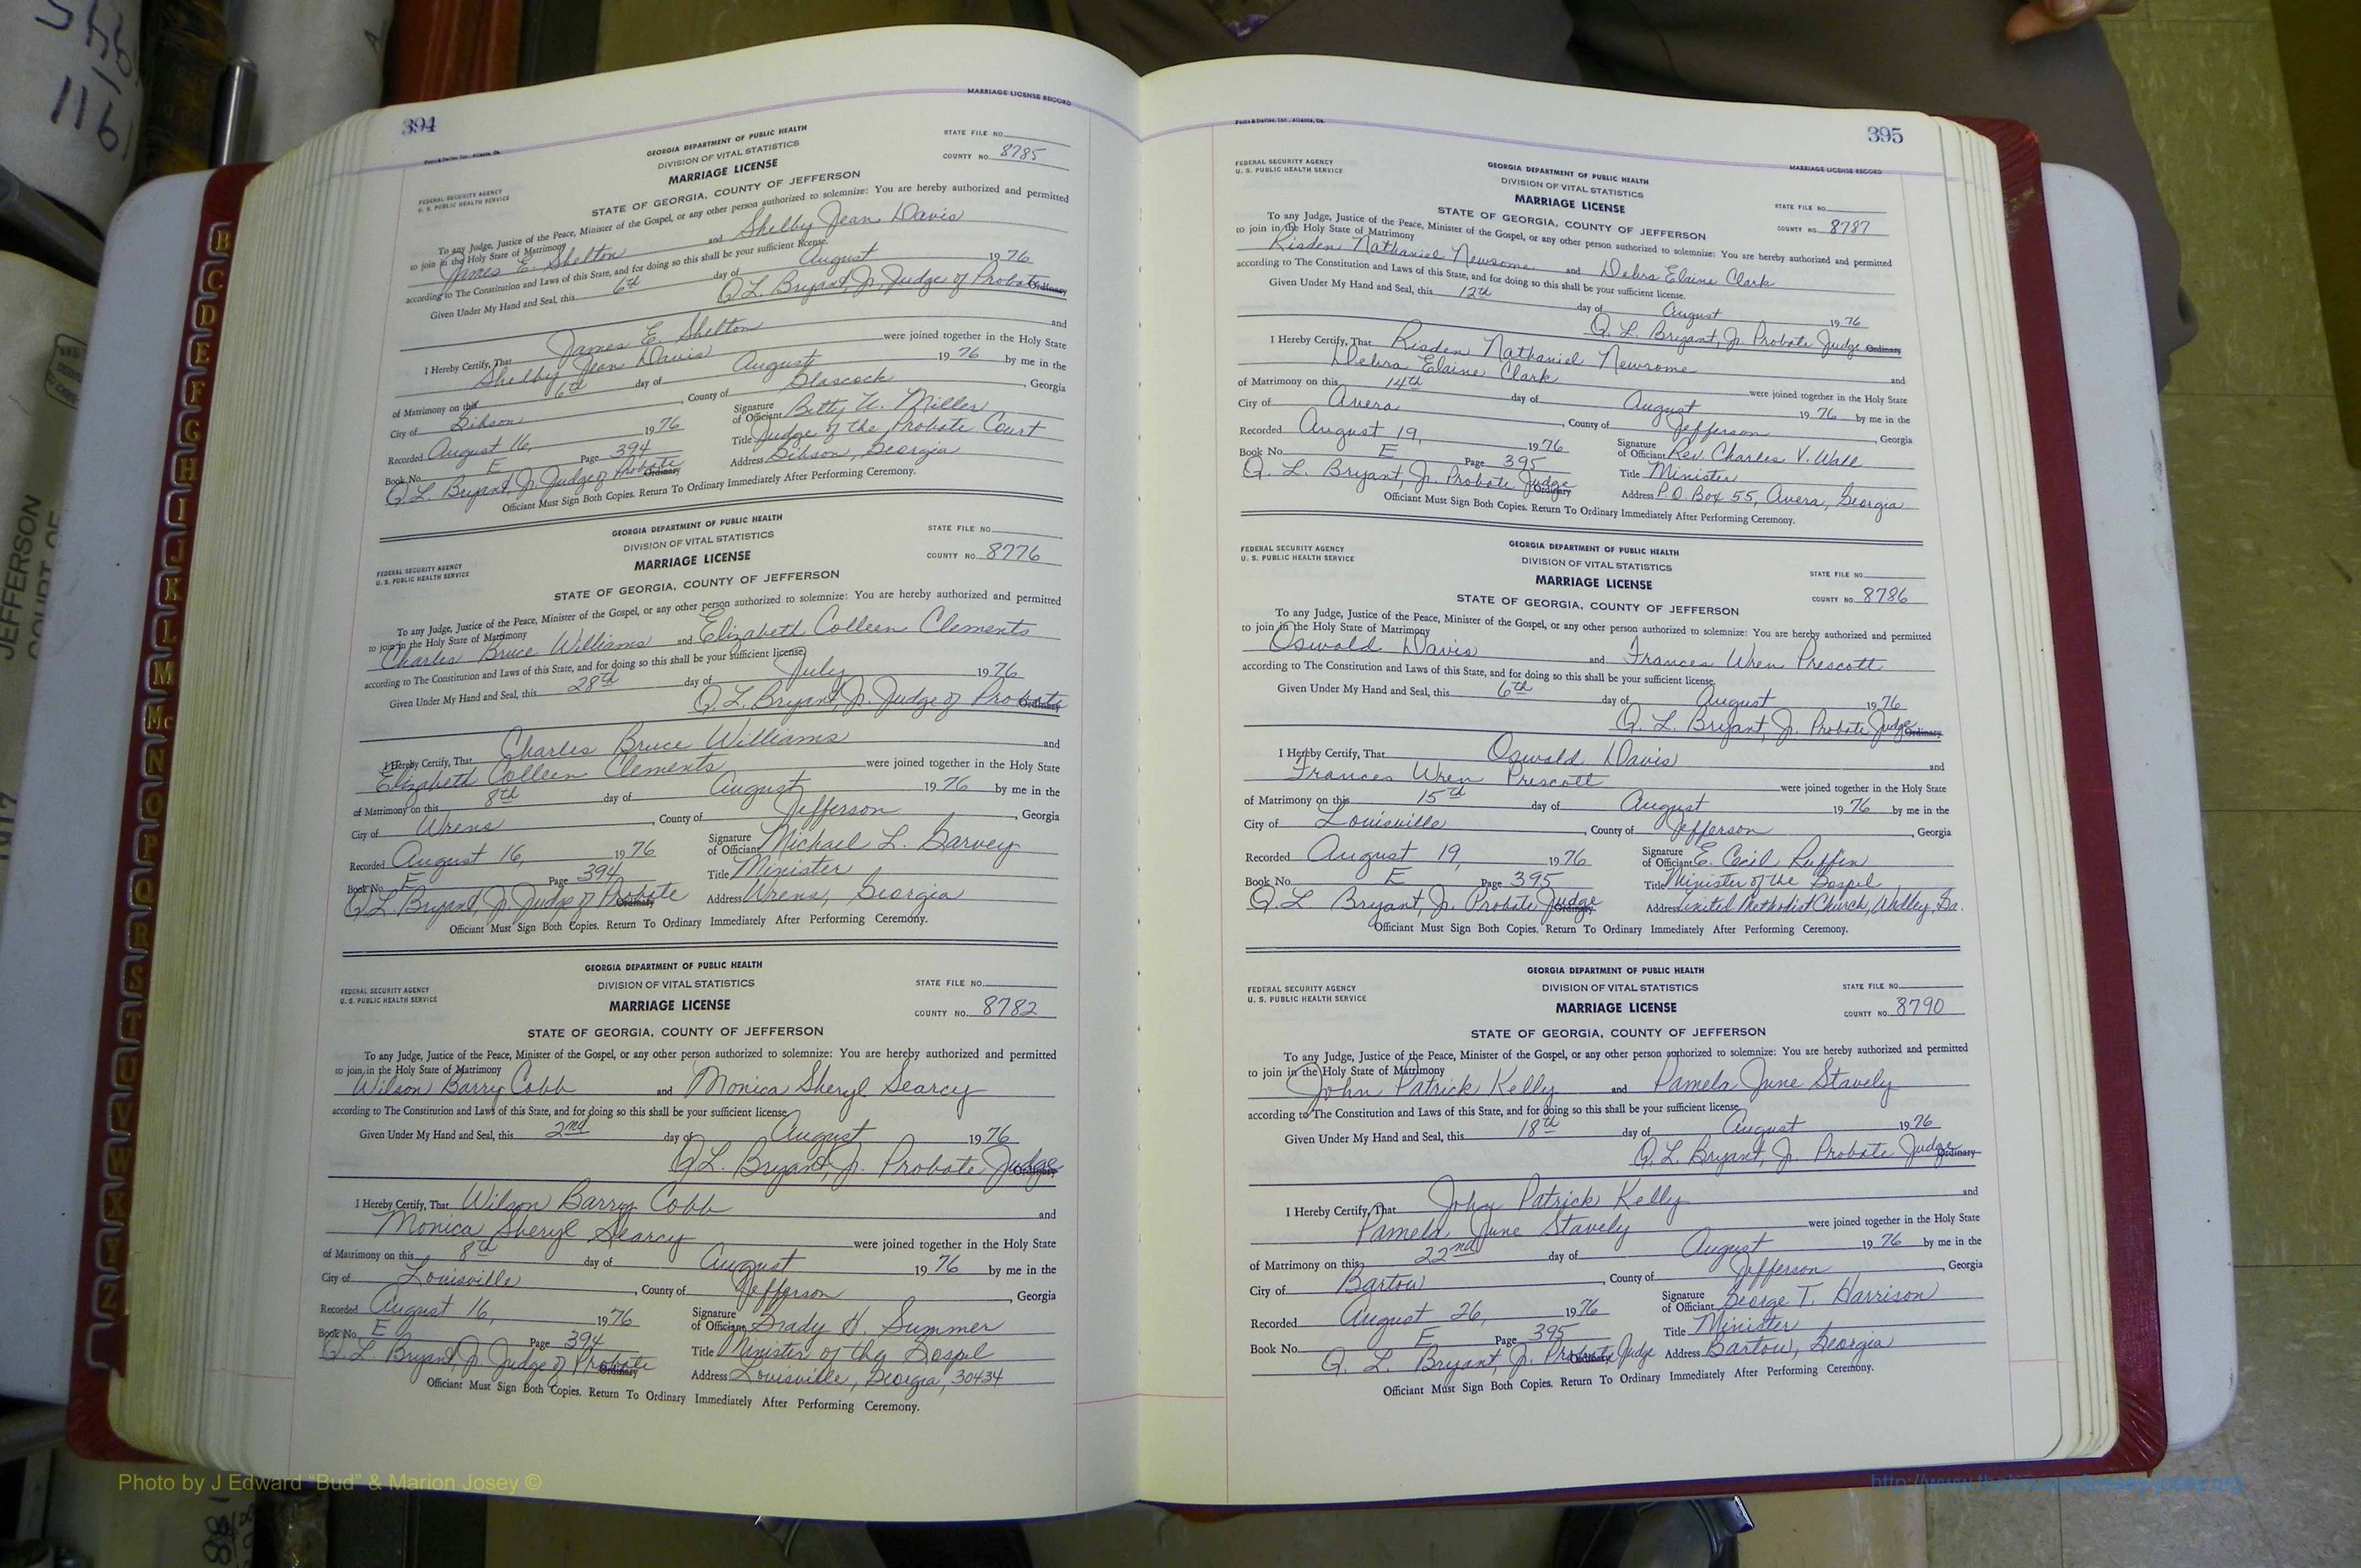 394
MARRIAGE LICENSE RECORD
Foote & Davies, Inc., Atlanta, Ga.
GEORGIA DEPARTMENT OF PUBLIC HEALTH
STATE FILE NO.
DIVISION OF VITAL STATISTICS
COUNTY NO. 8785
MARRIAGE LICENSE
FEDERAL SECURITY AGENCY
U. S. PUBLIC HEALTH SERVICE
STATE OF GEORGIA, COUNTY OF JEFFERSON
To any Judge, Justice of the Peace, Minister of the Gospel, or any other person authorized to solemnize: You are hereby authorized and permitted
to join in the Holy State of Matrimony
James E. Shelton and Shelby Jean Davis
according to The Constitution and Laws of this State, and for doing so this shall be your sufficient license.
Given Under My Hand and Seal, this 6th day of August 1976
Q. L. Bryant, Jr. Judge of Probate Ordinary
I Hereby Certify, That James E. Shelton and
Shelby Jean Davis were joined together in the Holy State
of Matrimony on this 6th day of August 1976 by me in the
City of Gibson, County of Glascock, Georgia
Recorded August 16, 1976 Signature of Officiant Betty W. Miller
Book No. E Page 394 Title Judge of the Probate Court
Q. L. Bryant, Jr. Judge of Probate Ordinary Address Gibson, Georgia
Officiant Must Sign Both Copies. Return To Ordinary Immediately After Performing Ceremony.
GEORGIA DEPARTMENT OF PUBLIC HEALTH
STATE FILE NO.
DIVISION OF VITAL STATISTICS
COUNTY NO. 8776
MARRIAGE LICENSE
FEDERAL SECURITY AGENCY
U. S. PUBLIC HEALTH SERVICE
STATE OF GEORGIA, COUNTY OF JEFFERSON
To any Judge, Justice of the Peace, Minister of the Gospel, or any other person authorized to solemnize: You are hereby authorized and permitted
to join in the Holy State of Matrimony
Charles Bruce Williams and Elizabeth Colleen Clements
according to The Constitution and Laws of this State, and for doing so this shall be your sufficient license.
Given Under My Hand and Seal, this 28th day of July 1976
Q. L. Bryant, Jr. Judge of Probate Ordinary
I Hereby Certify, That Charles Bruce Williams and
Elizabeth Colleen Clements were joined together in the Holy State
of Matrimony on this 8th day of August 1976 by me in the
City of Wrens, County of Jefferson, Georgia
Recorded August 16, 1976 Signature of Officiant Michael L. Garvey
Book No. E Page 394 Title Minister
Q. L. Bryant, Jr. Judge of Probate Ordinary Address Wrens, Georgia
Officiant Must Sign Both Copies. Return To Ordinary Immediately After Performing Ceremony.
GEORGIA DEPARTMENT OF PUBLIC HEALTH
DIVISION OF VITAL STATISTICS
STATE FILE NO.
FEDERAL SECURITY AGENCY
U. S. PUBLIC HEALTH SERVICE
MARRIAGE LICENSE
COUNTY NO. 8782
STATE OF GEORGIA, COUNTY OF JEFFERSON
To any Judge, Justice of the Peace, Minister of the Gospel, or any other person authorized to solemnize: You are hereby authorized and permitted
to join in the Holy State of Matrimony
Wilson Barry Cobb and Monica Sheryl Searcy
according to The Constitution and Laws of this State, and for doing so this shall be your sufficient license
Given Under My Hand and Seal, this 2nd day of August 1976
Q. L. Bryant, Jr. Probate Judge Ordinary
I Hereby Certify, That Wilson Barry Cobb and
Monica Sheryl Searcy were joined together in the Holy State
of Matrimony on this 8th day of August 1976 by me in the
City of Louisville, County of Jefferson, Georgia
Recorded August 16, 1976 Signature of Officiant Grady H. Summer
Book No. E Page 394 Title Minister of the Gospel
Q. L. Bryant, Jr. Judge of Probate Ordinary Address Louisville, Georgia, 30434
Officiant Must Sign Both Copies. Return To Ordinary Immediately After Performing Ceremony.
Foote & Davies, Inc., Atlanta, Ga.
395
MARRIAGE LICENSE RECORD
FEDERAL SECURITY AGENCY
U. S. PUBLIC HEALTH SERVICE
GEORGIA DEPARTMENT OF PUBLIC HEALTH
DIVISION OF VITAL STATISTICS
MARRIAGE LICENSE
STATE FILE NO.
STATE OF GEORGIA, COUNTY OF JEFFERSON
COUNTY NO. 8787
To any Judge, Justice of the Peace, Minister of the Gospel, or any other person authorized to solemnize: You are hereby authorized and permitted
to join in the Holy State of Matrimony
Risden Nathaniel Newsome and Debra Elaine Clark
according to The Constitution and Laws of this State, and for doing so this shall be your sufficient license.
Given Under My Hand and Seal, this 12th day of August 1976
Q. L. Bryant, Jr. Probate Judge Ordinary
I Hereby Certify, That Risden Nathaniel Newsome and
Debra Elaine Clark were joined together in the Holy State
of Matrimony on this 14th day of August 1976 by me in the
City of Avera, County of Jefferson, Georgia
Recorded August 19, 1976 Signature of Officiant Rev. Charles V. Wall
Book No. E Page 395 Title Minister
Q. L. Bryant, Jr. Probate Judge Ordinary Address P.O. Box 55, Avera, Georgia
Officiant Must Sign Both Copies. Return To Ordinary Immediately After Performing Ceremony.
GEORGIA DEPARTMENT OF PUBLIC HEALTH
FEDERAL SECURITY AGENCY
U. S. PUBLIC HEALTH SERVICE
DIVISION OF VITAL STATISTICS
STATE FILE NO
MARRIAGE LICENSE
COUNTY NO. 8786
STATE OF GEORGIA, COUNTY OF JEFFERSON
To any Judge, Justice of the Peace, Minister of the Gospel, or any other person authorized to solemnize: You are hereby authorized and permitted
to join in the Holy State of Matrimony
Oswald Davis and Frances Wren Prescott
according to The Constitution and Laws of this State, and for doing so this shall be your sufficient license.
Given Under My Hand and Seal, this 6th day of August 1976
Q. L. Bryant, Jr. Probate Judge Ordinary
I Hereby Certify, That Oswald Davis and
Frances Wren Prescott were joined together in the Holy State
of Matrimony on this 15th day of August 1976 by me in the
City of Louisville, County of Jefferson, Georgia
Recorded August 19, 1976 Signature of Officiant E. Cecil Ruffin
Book No. E Page 395 Title Minister of the Gospel
Q. L. Bryant, Jr. Probate Judge Ordinary Address United Methodist Church, Ga.
Officiant Must Sign Both Copies. Return To Ordinary Immediately After Performing Ceremony.
GEORGIA DEPARTMENT OF PUBLIC HEALTH
FEDERAL SECURITY AGENCY
U. S. PUBLIC HEALTH SERVICE
DIVISION OF VITAL STATISTICS
STATE FILE NO.
MARRIAGE LICENSE
COUNTY NO. 8790
STATE OF GEORGIA, COUNTY OF JEFFERSON
To any Judge, Justice of the Peace, Minister of the Gospel, or any other person authorized to solemnize: You are hereby authorized and permitted
to join in the Holy State of Matrimony
John Patrick Kelly and Pamela June Stavely
according to The Constitution and Laws of this State, and for doing so this shall be your sufficient license.
Given Under My Hand and Seal, this 18th day of August 1976
Q. L. Bryant, Jr. Probate Judge Ordinary
I Hereby Certify, That John Patrick Kelly and
Pamela June Stavely were joined together in the Holy State
of Matrimony on this 22nd day of August 1976 by me in the
City of Bartow, County of Jefferson, Georgia
Recorded August 26, 1976 Signature of Officiant George T. Harrison
Book No. E Page 395 Title Minister
Q. L. Bryant, Jr. Probate Ordinary Judge Address Bartow, Georgia
Officiant Must Sign Both Copies. Return To Ordinary Immediately After Performing Ceremony.
B
C
D
E
F
G
H
I
J
K
L
M
Mc
N
O
P
Q
R
S
T
U
V
W
X
Y
Z
JEFFERSON
COURT OF
Photo by J Edward “Bud” & Marion Josey ©